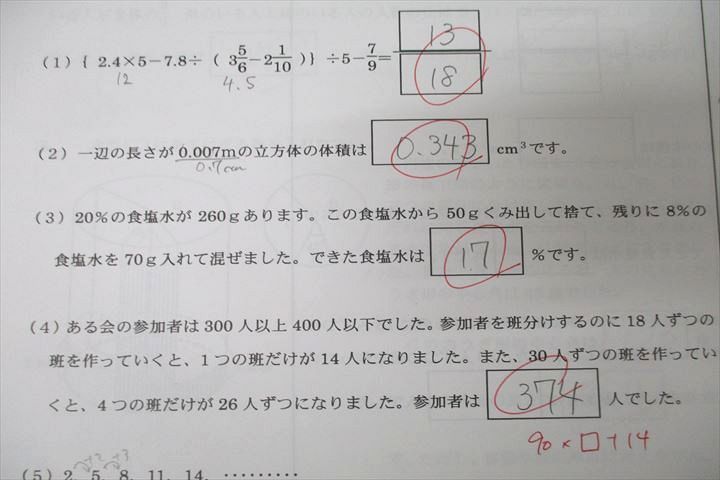 (1) { 2.4×5−7.8÷ ( 3 5/6 − 2 1/10 )} ÷5− 7/9 = 13/18
12 4.5
(2) 一辺の長さが 0.007m の立方体の体積は 0.343 cm³です。
0.7cm
(3) 20%の食塩水が 260gあります。この食塩水から 50gくみ出して捨て、残りに 8%の
食塩水を 70g入れて混ぜました。できた食塩水は 17 %です。
(4) ある会の参加者は 300 人以上 400 人以下でした。参加者を班分けするのに 18 人ずつの
班を作っていくと、1つの班だけが 14 人になりました。また、30 人ずつの班を作ってい
くと、4つの班だけが 26 人ずつになりました。参加者は 374 人でした。
90×□+14
+2 +3
(5) 2, 5, 8, 11, 14, ………